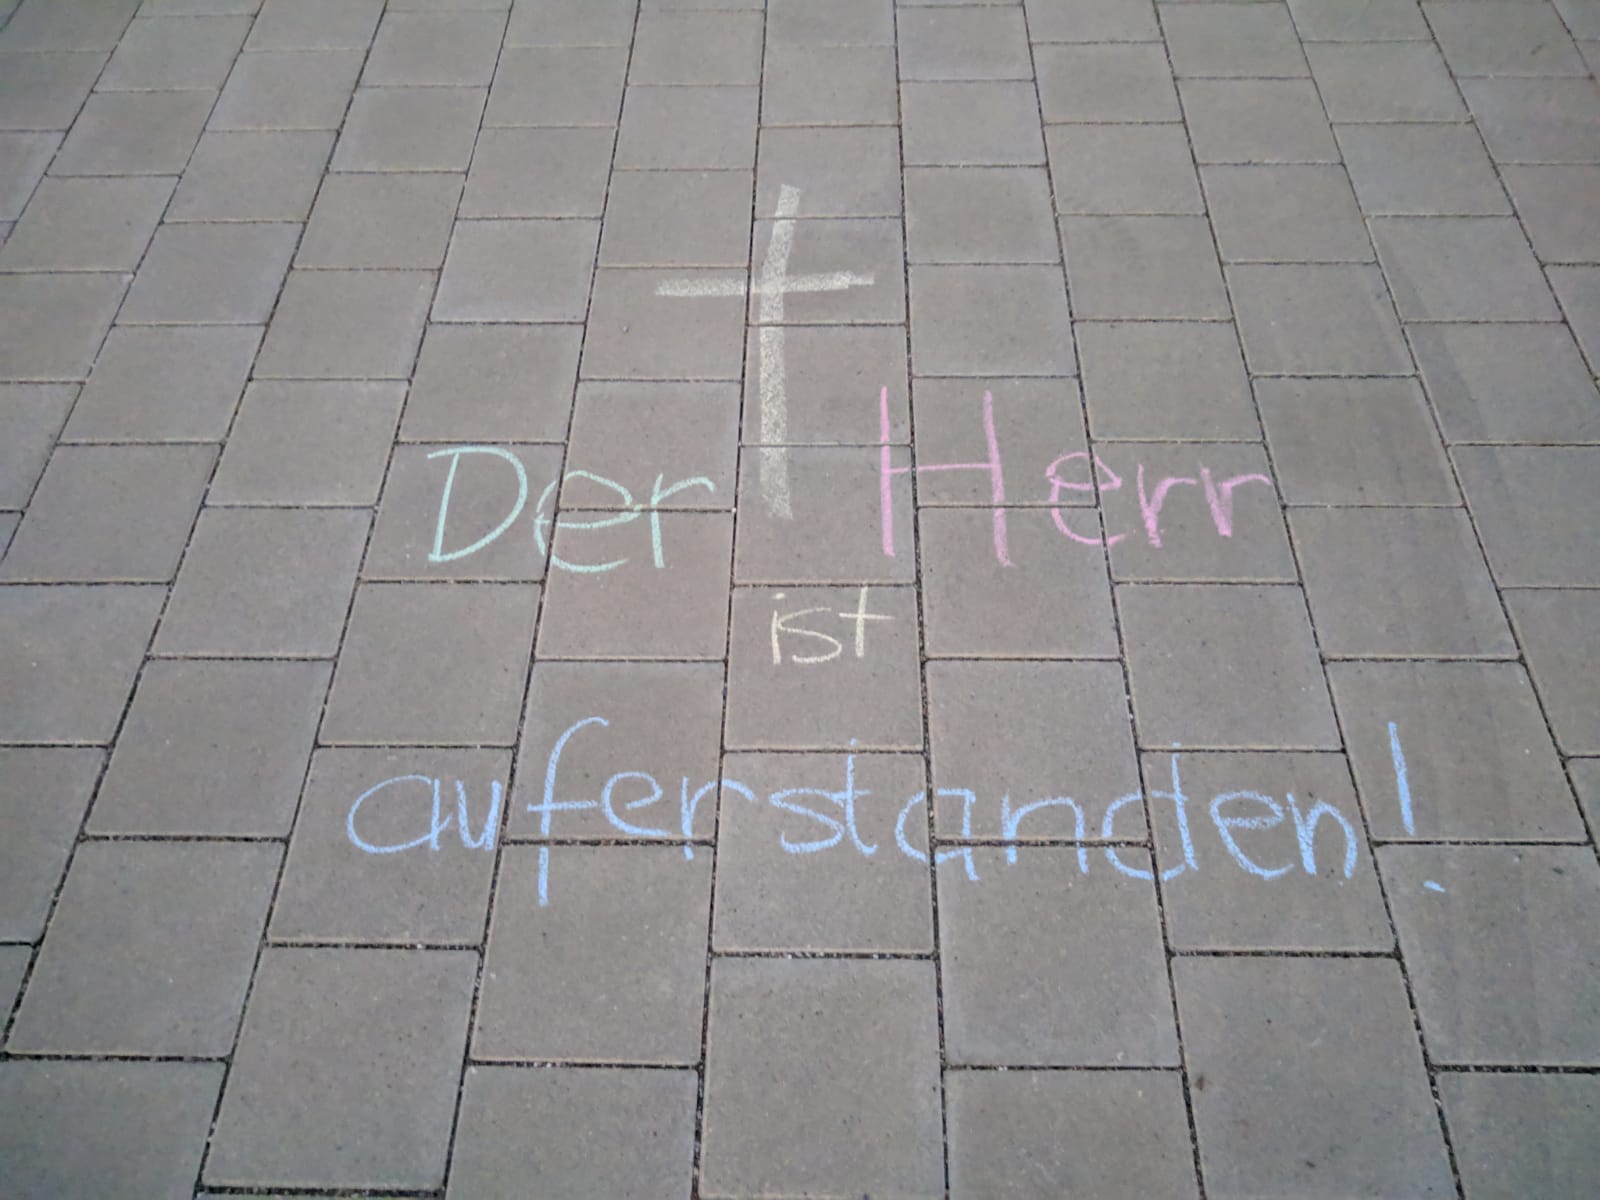 Der Herr
ist
auferstanden!